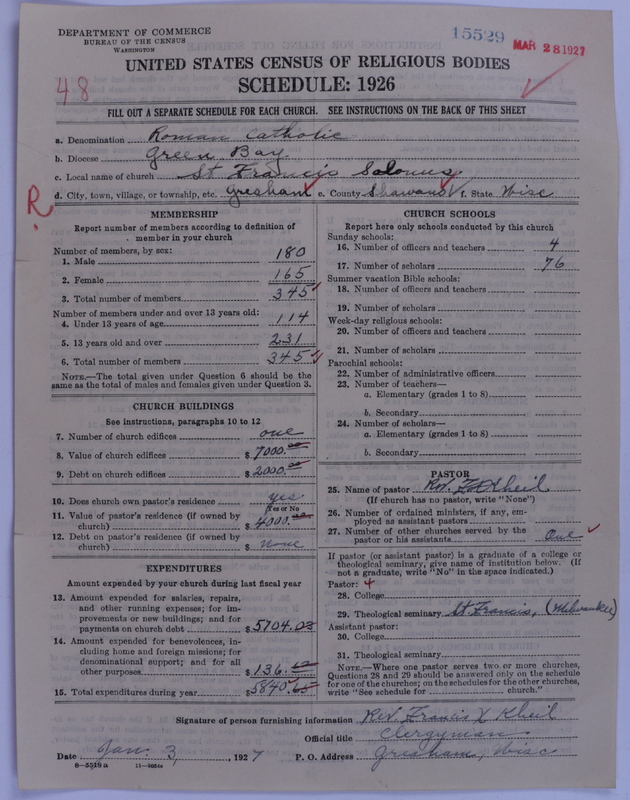 DEPARTMENT OF COMMERCE
BUREAU OF THE CENSUS
WASHINGTON
15529
MAR 28 1927
48
UNITED STATES CENSUS OF RELIGIOUS BODIES
SCHEDULE: 1926
FILL OUT A SEPARATE SCHEDULE FOR EACH CHURCH. SEE INSTRUCTIONS ON THE BACK OF THIS SHEET
a. Denomination Roman Catholic
b. Diocese Green Bay
c. Local name of church St Francis Solonus
R
d. City, town, village, or township, etc. Gresham e. County Shawano f. State Wisc
MEMBERSHIP
Report number of members according to definition of
member in your church
Number of members, by sex:
1. Male 180
2. Female 165
3. Total number of members 345
Number of members under and over 13 years old:
4. Under 13 years of age 114
5. 13 years old and over 231
6. Total number of members 345
NOTE.—The total given under Question 6 should be the
same as the total of males and females given under Question 3.
CHURCH BUILDINGS
See instructions, paragraphs 10 to 12
7. Number of church edifices one
8. Value of church edifices $ 7000.00
9. Debt on church edifices $ 2000.00
10. Does church own pastor's residence yes
(Yes or No)
11. Value of pastor's residence (if owned by
church) $ 4000.00
12. Debt on pastor's residence (if owned by
church) $ none
EXPENDITURES
Amount expended by your church during last fiscal year
13. Amount expended for salaries, repairs,
and other running expenses; for im-
provements or new buildings; and for
payments on church debt $ 5704.03
14. Amount expended for benevolences, in-
cluding home and foreign missions; for
denominational support; and for all
other purposes $ 136.62
15. Total expenditures during year $ 5840.65
CHURCH SCHOOLS
Report here only schools conducted by this church
Sunday schools:
16. Number of officers and teachers 4
17. Number of scholars 76
Summer vacation Bible schools:
18. Number of officers and teachers
19. Number of scholars
Week-day religious schools:
20. Number of officers and teachers
21. Number of scholars
Parochial schools:
22. Number of administrative officers
23. Number of teachers—
a. Elementary (grades 1 to 8)
b. Secondary
24. Number of scholars—
a. Elementary (grades 1 to 8)
b. Secondary
PASTOR
25. Name of pastor Rev. F X Kheil
(If church has no pastor, write "None")
26. Number of ordained ministers, if any, em-
ployed as assistant pastors
27. Number of other churches served by the
pastor or his assistants One
If pastor (or assistant pastor) is a graduate of a college or
theological seminary, give name of institution below. (If
not a graduate, write "No" in the space indicated.)
Pastor: 4
28. College
29. Theological seminary St Francis, (Milwaukee)
Assistant pastor:
30. College
31. Theological seminary
NOTE.—Where one pastor serves two or more churches,
Questions 28 and 29 should be answered only on the schedule
for one of the churches; on the schedules for the other churches,
write "See schedule for church."
Signature of person furnishing information Rev Francis X Kheil
Official title Clergyman
Date Jan. 3, 1927 P. O. Address Gresham, Wisc